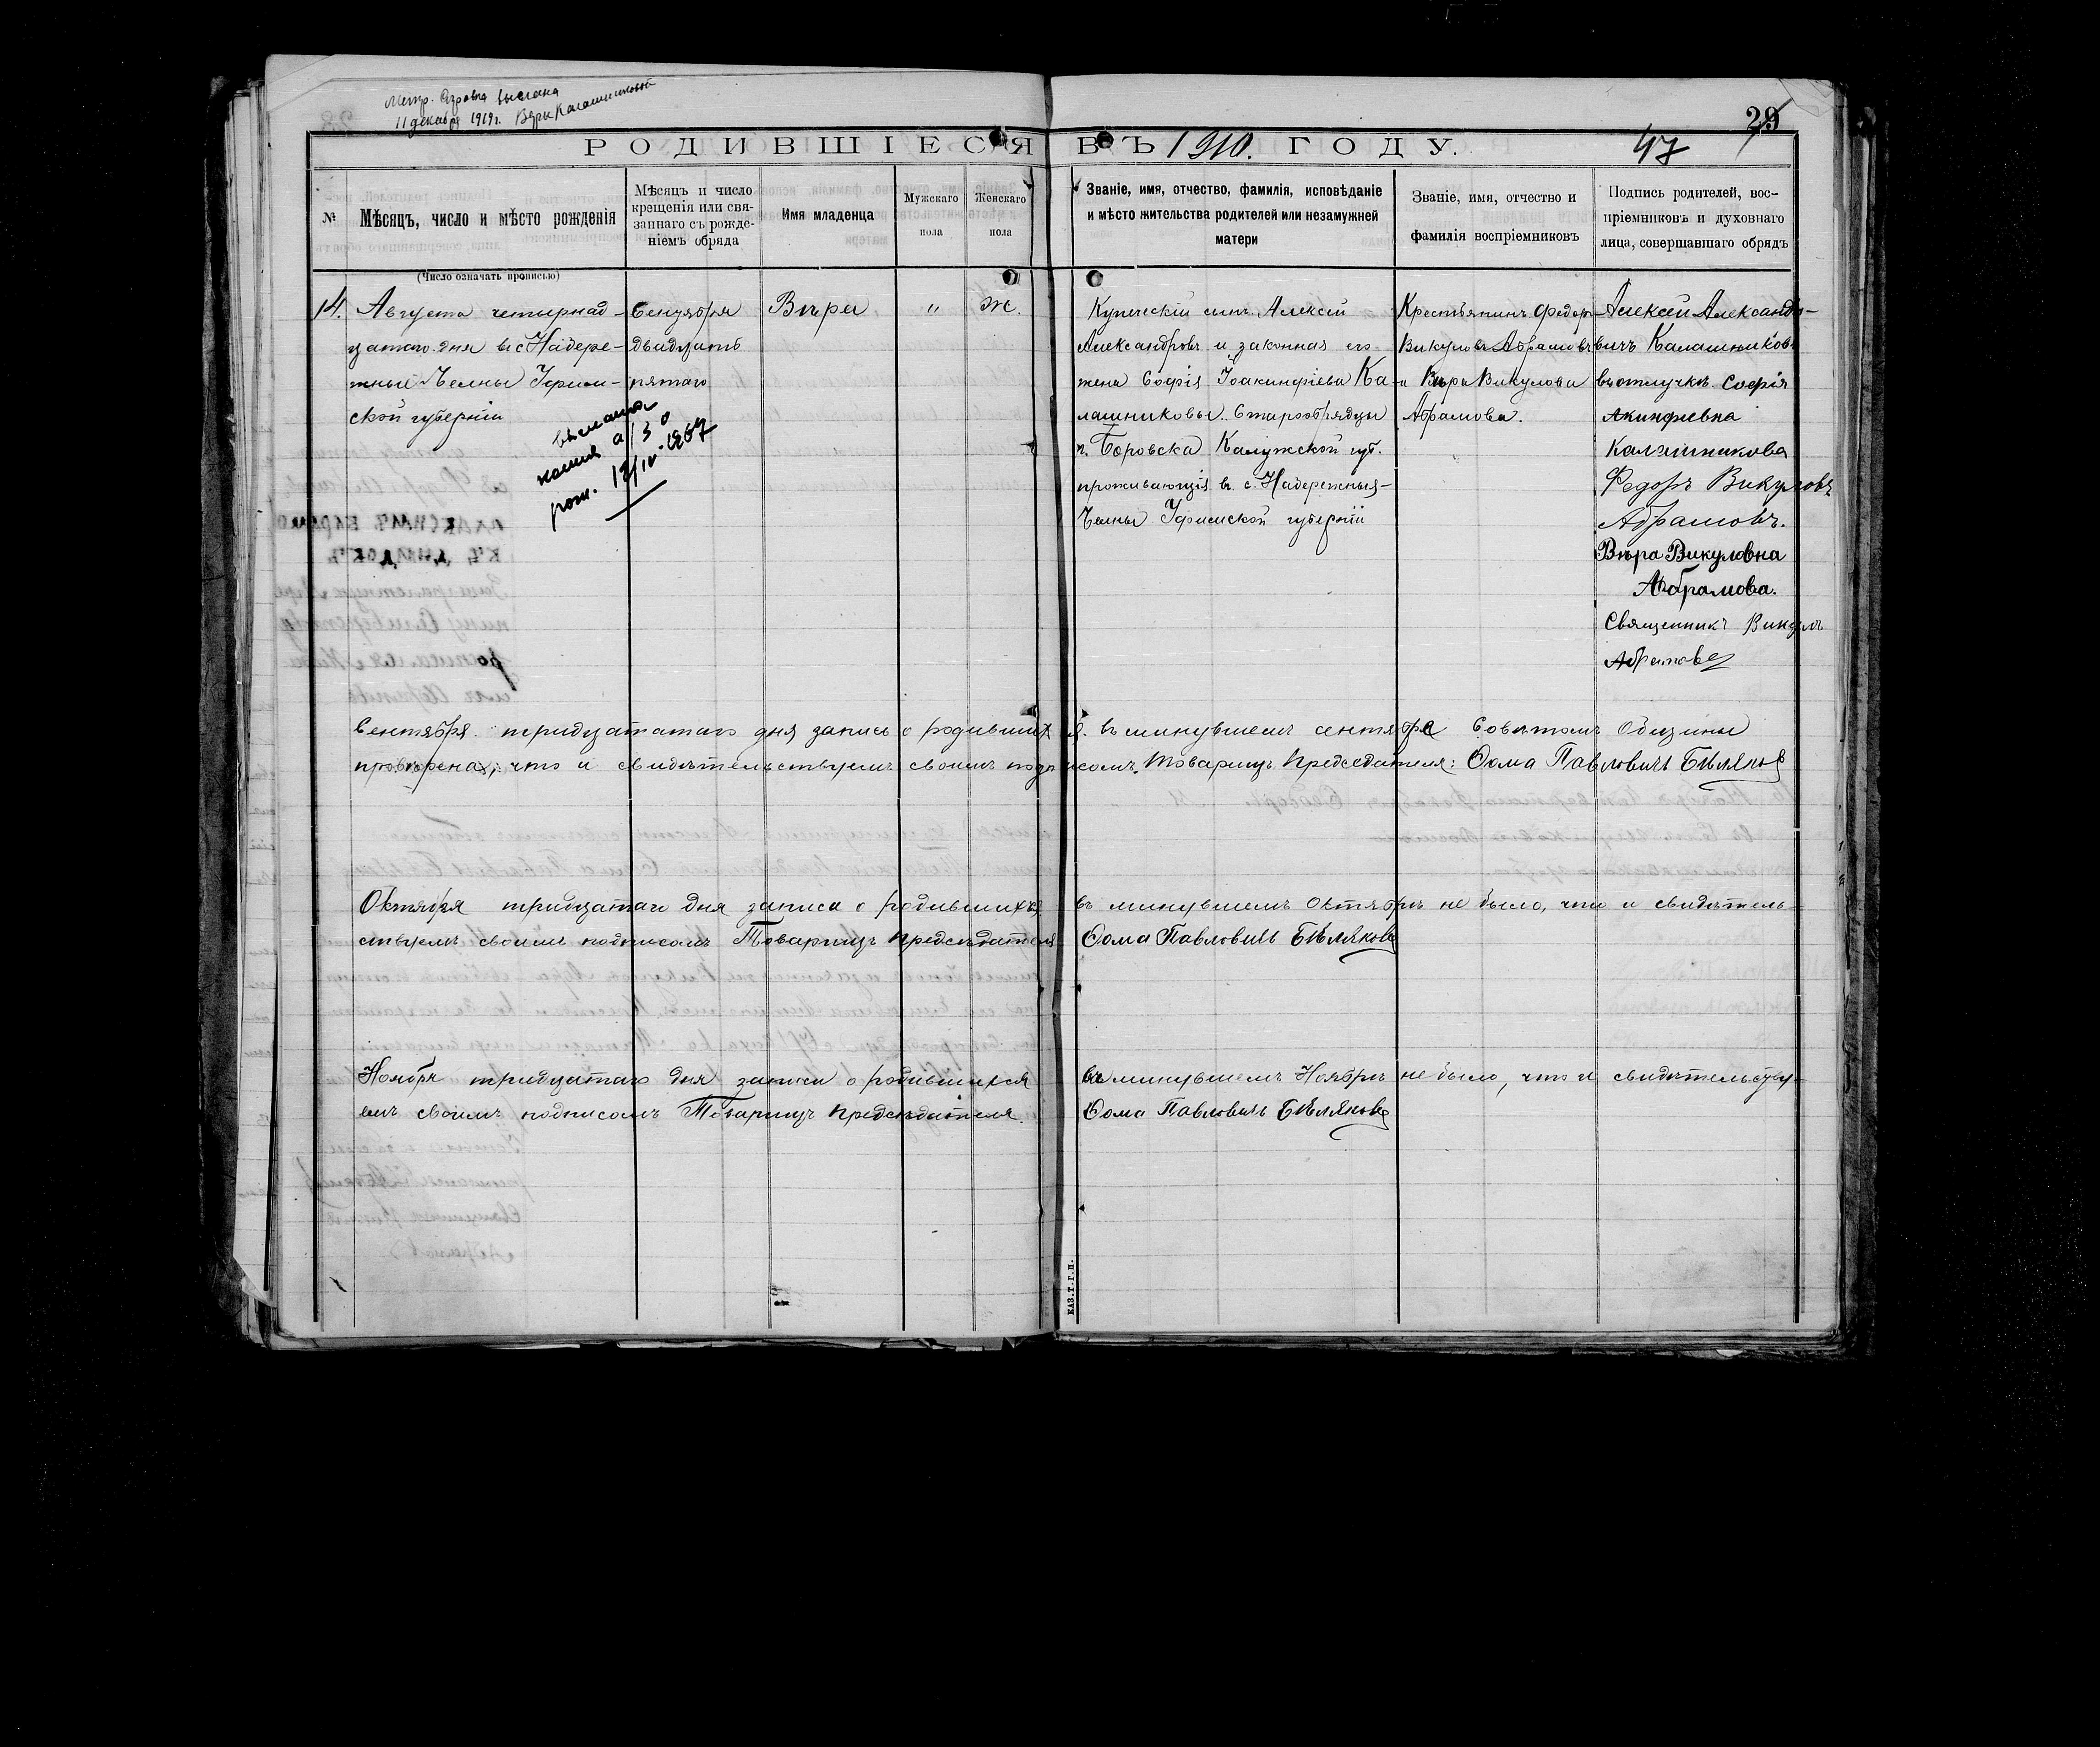 Метр. справка выслана
11 декабря 1919 г. Веры Калашниковой
29
47
РОДИВШІЕСЯ ВЪ 1910. ГОДУ.
№
Мѣсяцъ, число и мѣсто рожденія
(Число означать прописью)
Мѣсяцъ и число
крещенія или свя-
заннаго съ рожде-
ніемъ обряда
Имя младенца
Мужскаго
пола
Женскаго
пола
Званіе, имя, отчество, фамилія, исповѣданіе
и мѣсто жительства родителей или незамужней
матери
Званіе, имя, отчество и
фамилія воспріемниковъ
Подпись родителей, вос-
пріемниковъ и духовнаго
лица, совершавшаго обрядъ
14.
Августа четырнад-
цатаго дня въ с Набере-
жные Челны Уфим-
ской губерніи
Сентября
двадцать
пятаго
Вѣра
"
Ж.
Купеческій сынъ Алексей
Александровъ и законная его
жена Софія Іоакинфіева Ка-
лашниковы. Старообрядцы
г. Боровска Калужской губ.
проживающія в. с. Набережныя-
Челны Уфимской губерніи
Крестьянинъ Федоръ
Викуловъ Абрамовъ
и Вѣра Викулова
Абрамова.
Алексей Александро-
вичъ Калашниковъ
въ отлучкѣ. Софія
Акинфиевна
Калашникова
Федоръ Викуловъ
Абрамовъ.
Вѣра Викуловна
Абрамова.
Священникъ Викулъ
Абрамовъ
выслана
копия а/з о
рож. 13/IV-1967
Сентября тридцатаго дня запись о родившихся. въ минувшемъ сентябре Советомъ Общины
провѣрена, что и свидѣтельствуемъ своимъ подписомъ. Товарищъ Председателя: Ѳома Павловичъ Бѣляковъ
Октября тридцатаго дня записи о родившихся въ минувшемъ Октябрѣ не было, что и свидѣтель-
ствуемъ своимъ подписомъ Товарищъ Предсѣдателя Ѳома Павловичъ Бѣляковъ
Ноября тридцатаго дня записи о родившихся въ минувшемъ Ноябрѣ не было, что и свидѣтельству-
емъ своимъ подписомъ Товарищъ Предсѣдателя. Ѳома Павловичъ Бѣляковъ
КАЗ. Т. Г. П.